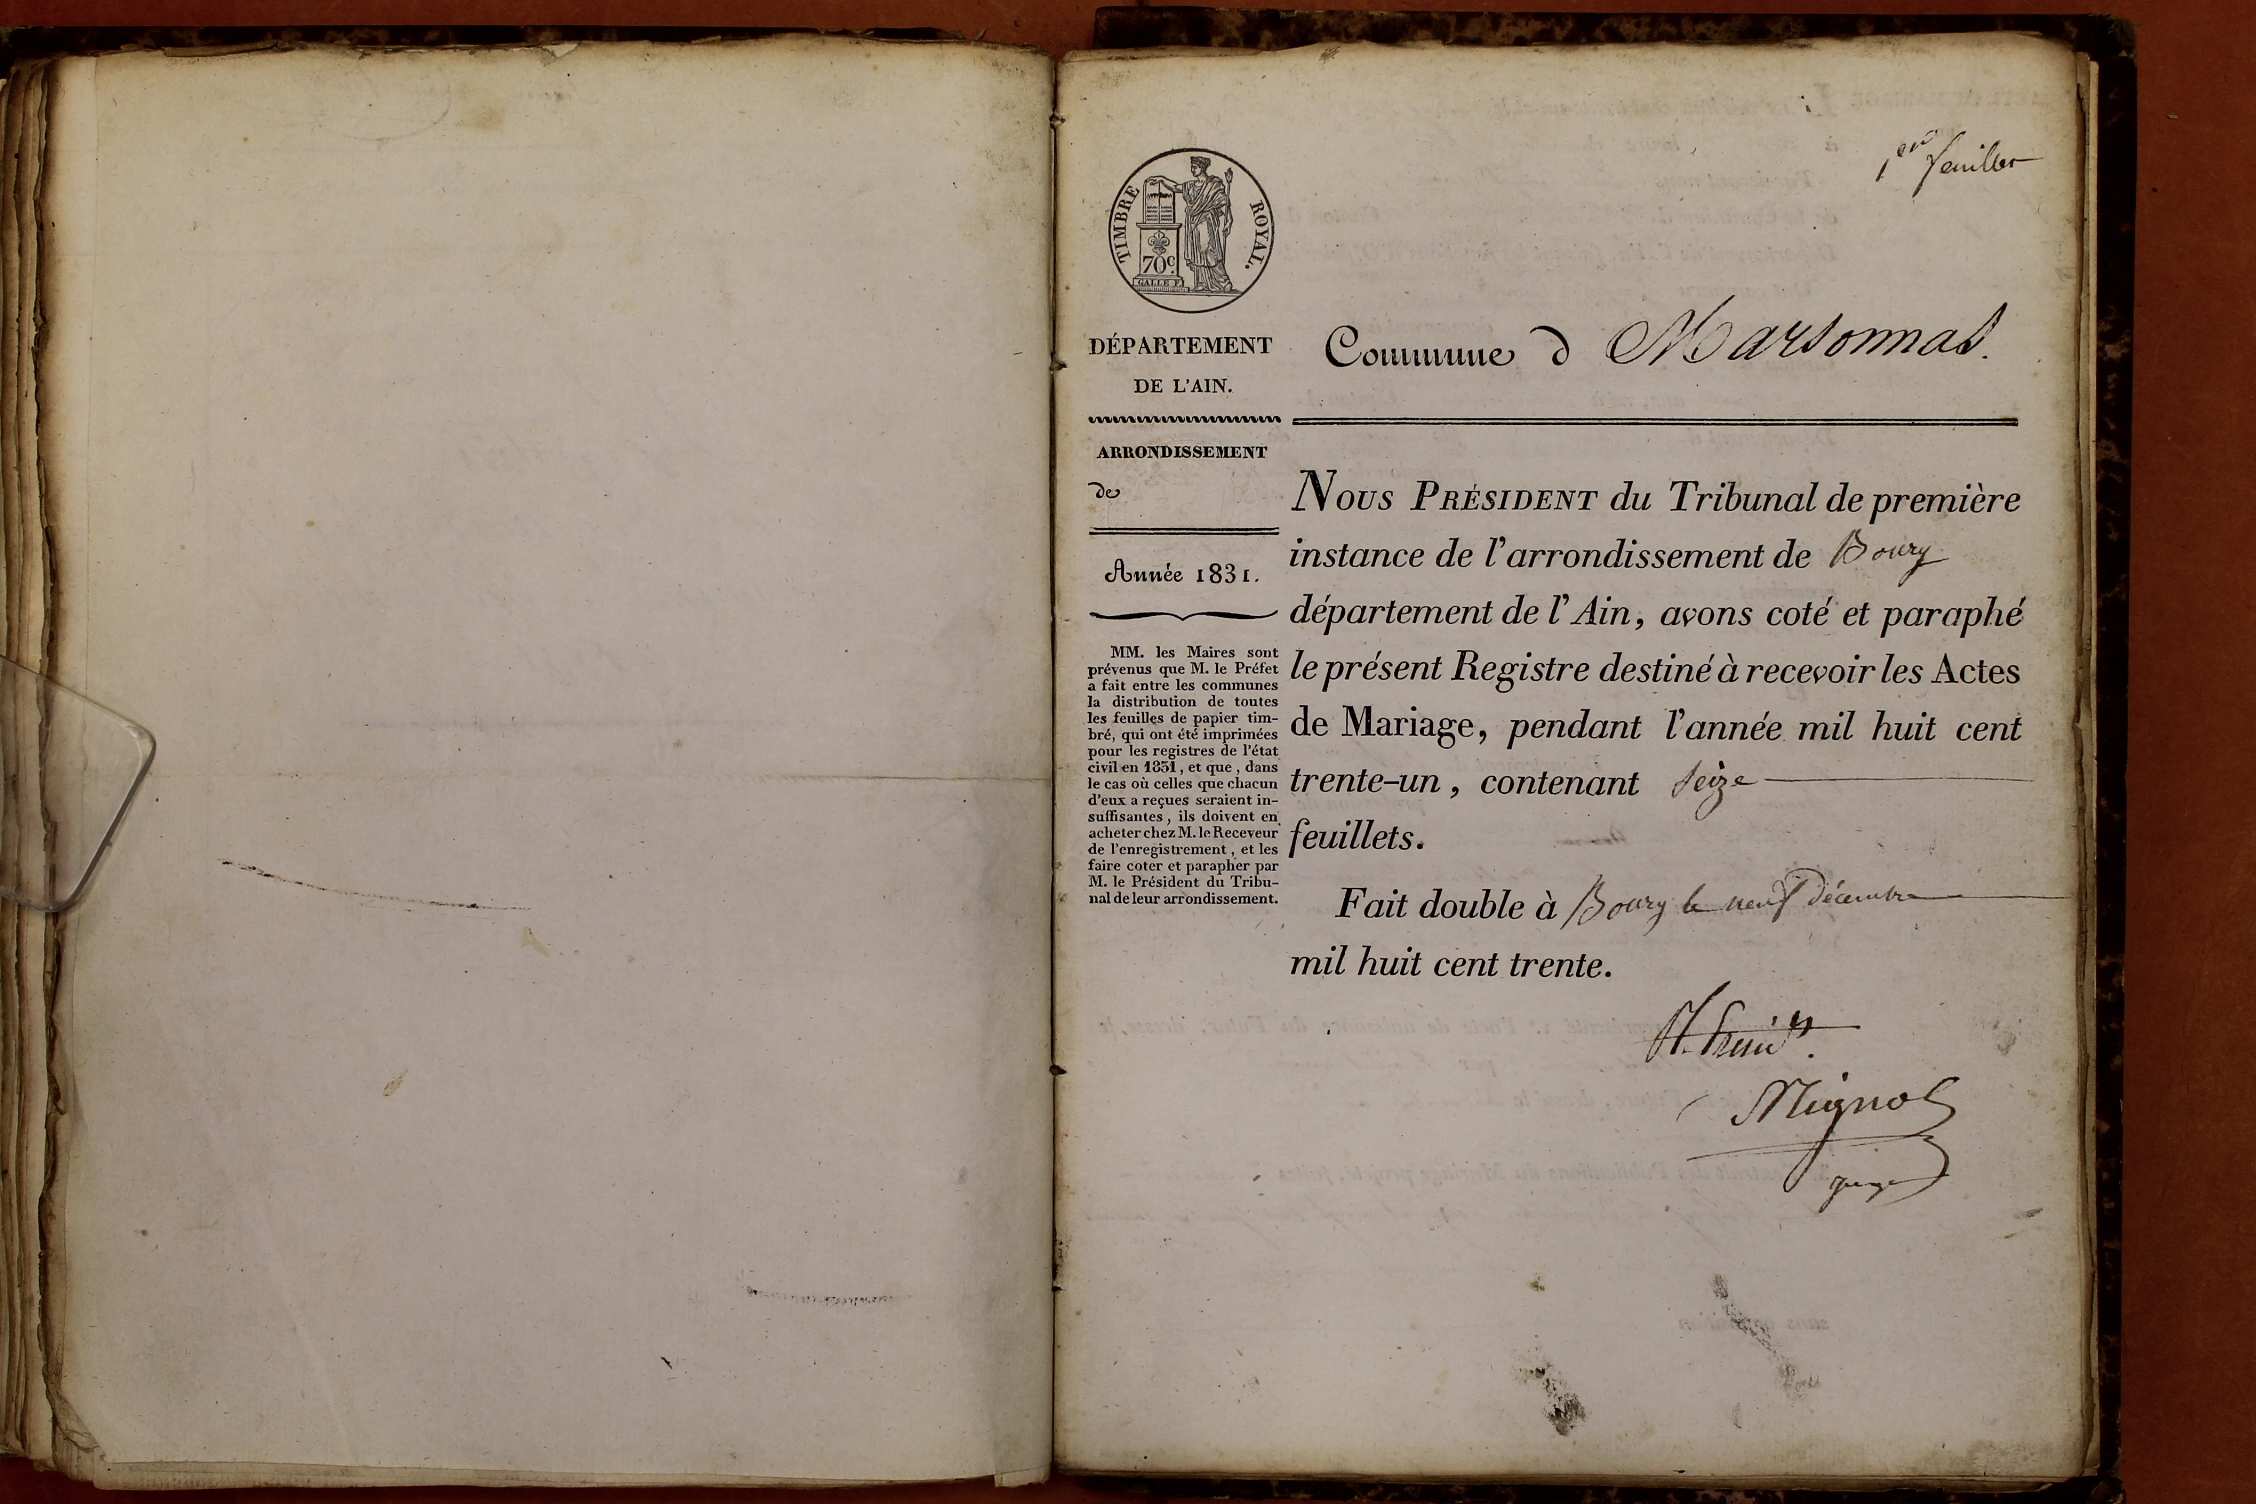 1er feuillet
TIMBRE ROYAL.
70c.
GALLE F.
DÉPARTEMENT
DE L'AIN.
ARRONDISSEMENT
de
Année 1831.
MM. les Maires sont
prévenus que M. le Préfet
a fait entre les communes
la distribution de toutes
les feuilles de papier tim-
bré, qui ont été imprimées
pour les registres de l'état
civil en 1831, et que, dans
le cas où celles que chacun
d'eux a reçues seraient in-
suffisantes, ils doivent en
acheter chez M. le Receveur
de l'enregistrement, et les
faire coter et parapher par
M. le Président du Tribu-
nal de leur arrondissement.
Commune d Marsonnas.
NOUS PRÉSIDENT du Tribunal de première
instance de l'arrondissement de Bourg
département de l'Ain, avons coté et paraphé
le présent Registre destiné à recevoir les Actes
de Mariage, pendant l'année mil huit cent
trente-un, contenant seize
feuillets.
Fait double à Bourg le neuf Décembre
mil huit cent trente.
Mignot
juge